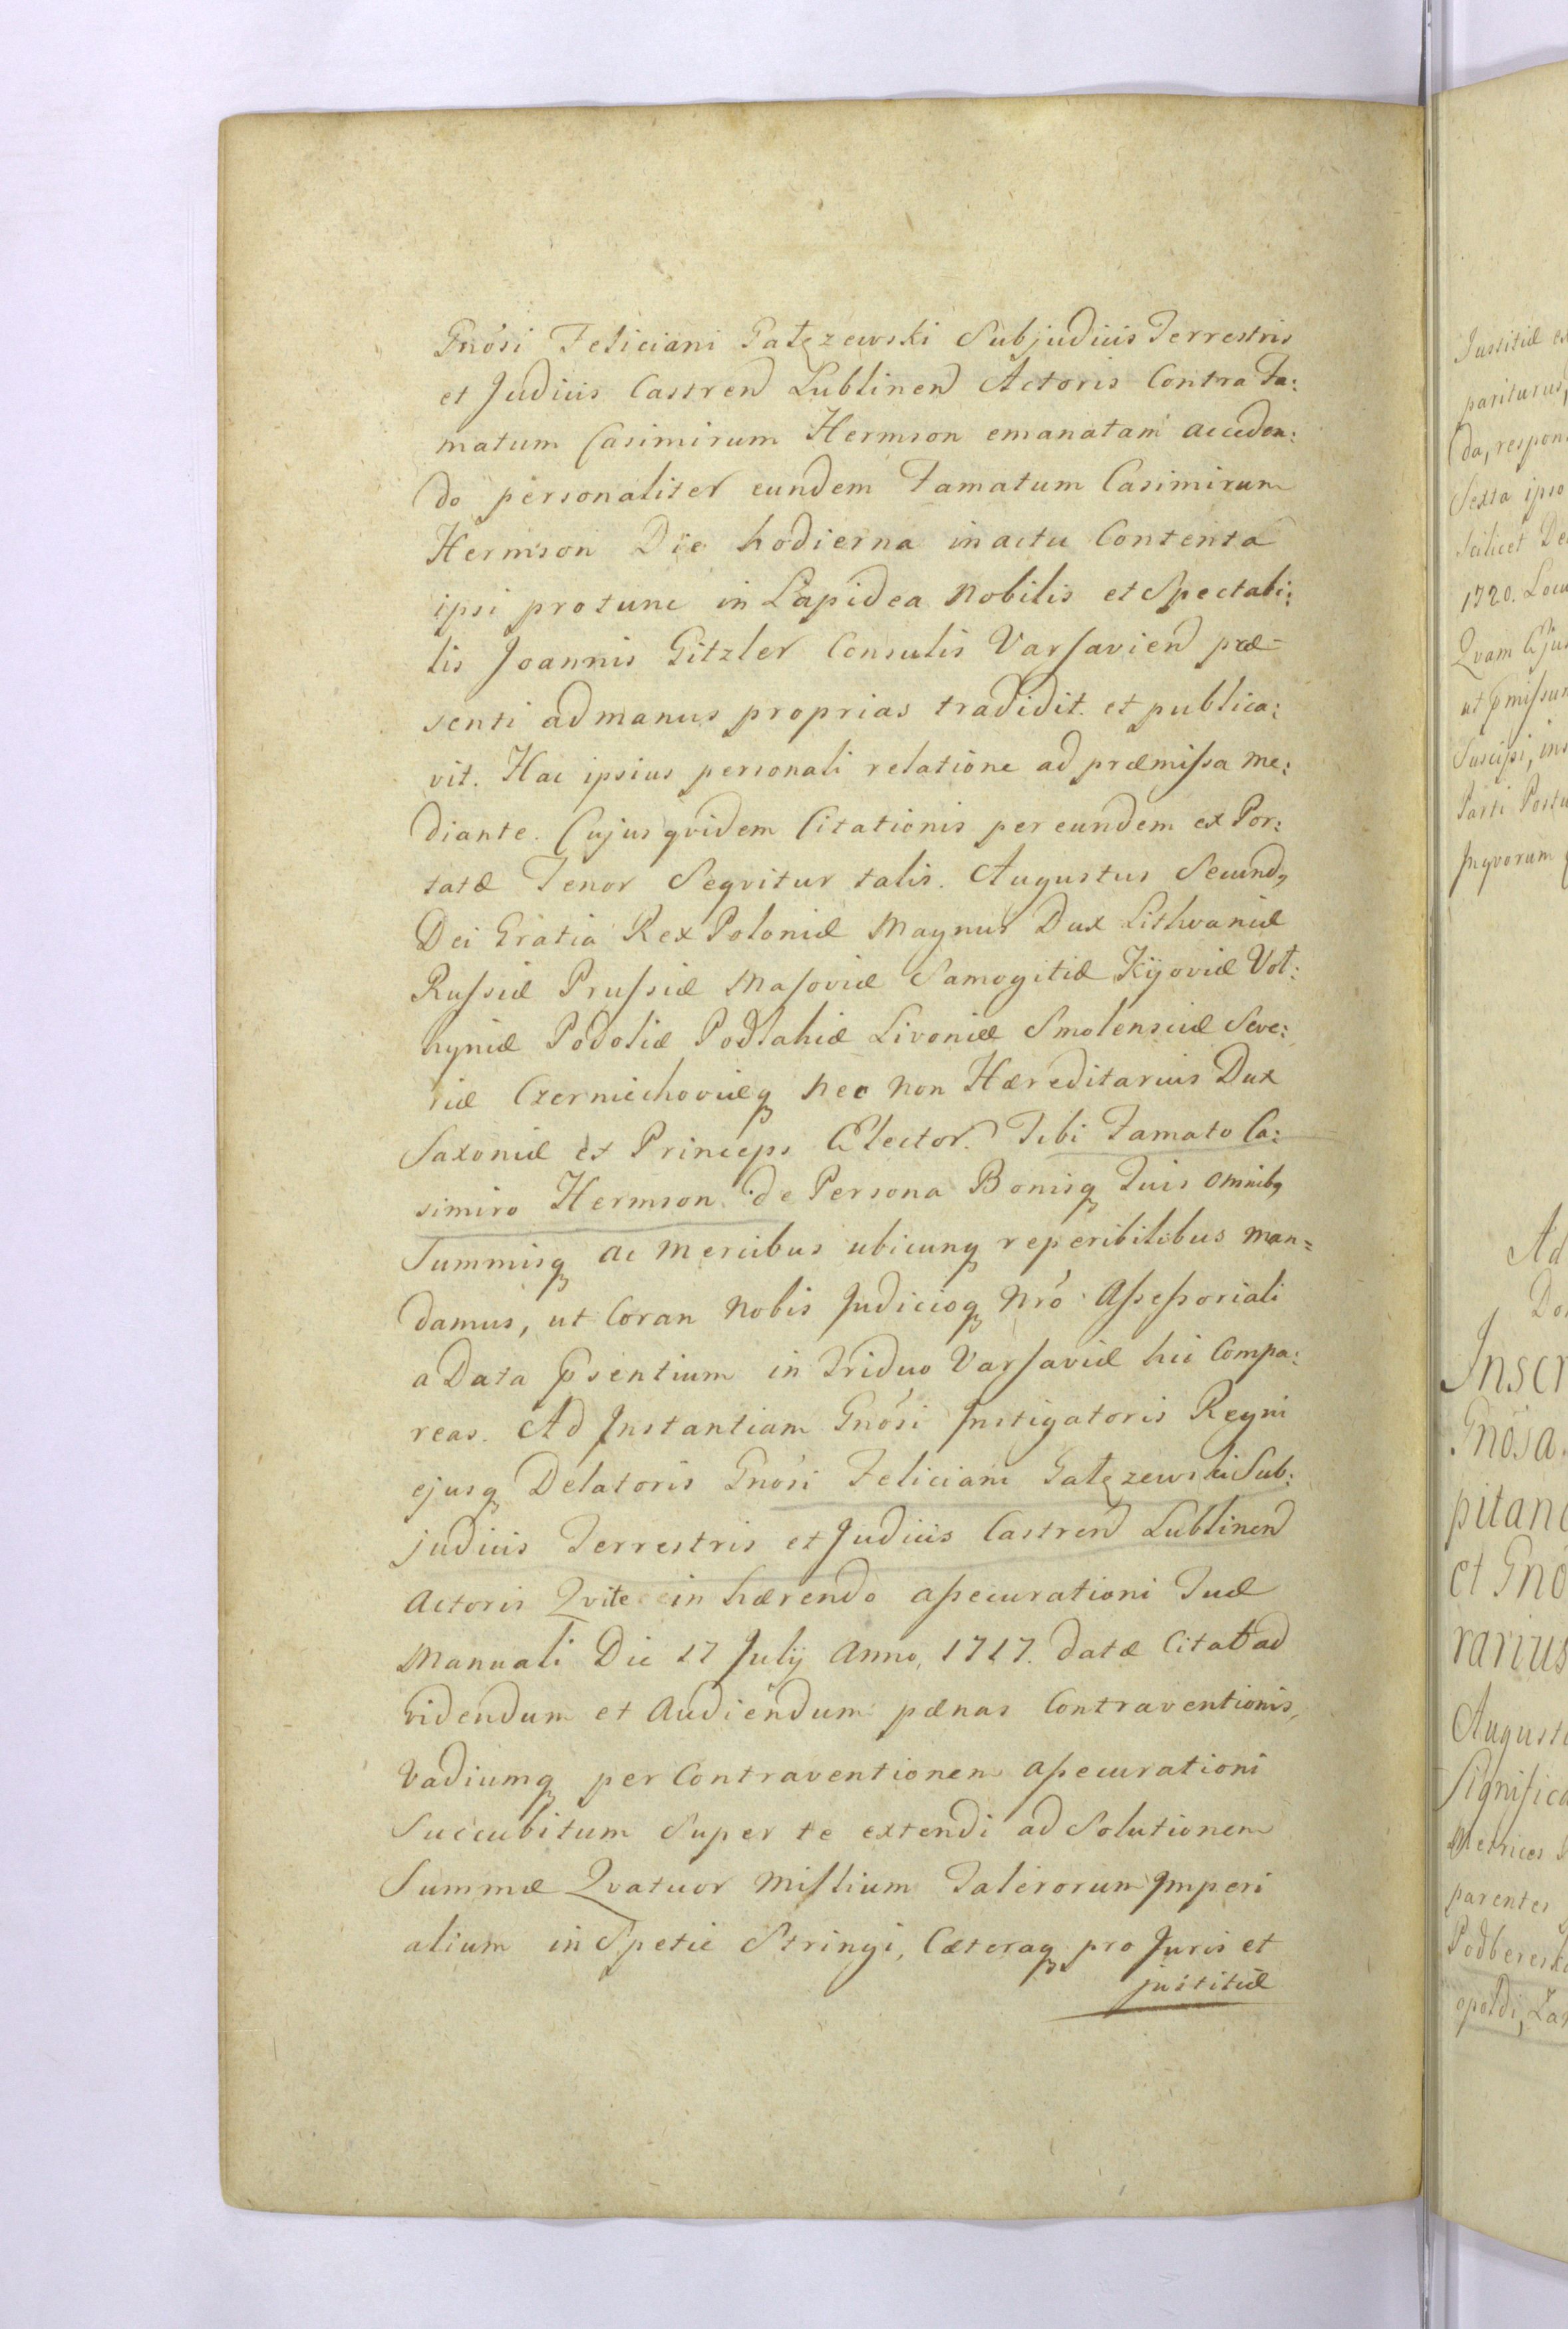 Gnósi Feliciani Gałęzewski Subjudicis Terrestris
et Judicis Castren Lublinen Actoris Contra Fa:
matum Casimirum Hermson emanatam acceden:
do personaliter eundem Famatum Casimirum
Hermson Die hodierna in actu Contenta
ipsi protunc in Lapidea Nobilis et Spectabi:
lis Joannis Gitzler Consulis Varsavien præ-
senti ad manus proprias tradidit. et publica:
vit. Hac ipsius personali relatione ad præmissa me:
diante. Cujus qvidem Citationis per eundem ex Por:
tatæ Tenor Seqvitur talis. Augustus Secundꝰ
Dei Gratia Rex Poloniæ Magnus Dux Lithvaniæ
Russiæ Prussiæ Masoviæ Samogitiæ Kijoviæ Voł:
hyniæ Podoliæ Podlahiæ Livoniæ Smolensciæ Seve:
riæ Czerniechoviæqꝫ nec non Hæreditarius Dux
Saxoniæ et Princeps Elector. Tibi Famato Ca:
simiro Hermson de Persona Bonisqꝫ Tuis omnibꝰ
Summisqꝫ ac mercibus ubicunqꝫ reperibilibus man=
damus, ut Coran Nobis Judicioqꝫ Nró Assessoriali
a Data Psentium in Triduo Varsaviæ hic Compa:
reas. Ad Instantiam Gnósi Instigatoris Regni
ejusqꝫ Delatoris Gnósi Feliciani Gałęzewski Sub:
judicis Terrestris et Judicis Castren Lublinen
Actoris Qvi te in hærendo assecurationi Tuæ
Manuali Die 17 Julij Anno, 1717. datæ Citat ad
videndum et Audiendum pænas Contraventionis,
Vadiumqꝫ per Contraventionem assecurationi
Succubitum Super te extendi ad Solutionem
Summæ Qvatuor Millium Talerorum Imperi
alium in Spetie Stringi, Cæteraqꝫ pro Juris et
justitiæ
Justitiæ
pariturus,
da,
Sexta ipso
Scilicet
1720.
Qvam
ut
Suscepi,
Parti
Inqvorum
Ad
Gnósa
et Gnó
rarius
parentes